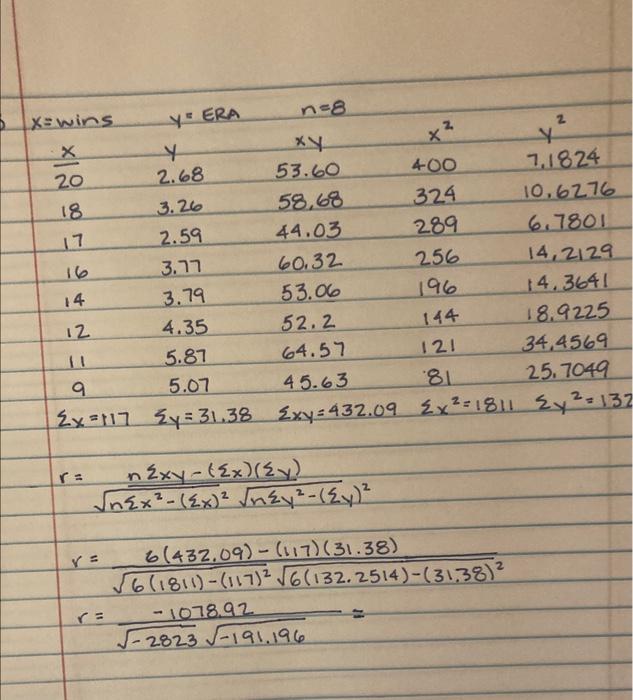 x=wins y= ERA n=8
x y xy x² y²
20 2.68 53.60 400 7.1824
18 3.26 58.68 324 10.6276
17 2.59 44.03 289 6.7801
16 3.77 60.32 256 14.2129
14 3.79 53.06 196 14.3641
12 4.35 52.2 144 18.9225
11 5.87 64.57 121 34.4569
9 5.07 45.63 81 25.7049
Σx=117 Σy=31.38 Σxy=432.09 Σx²=1811 Σy²=132
r= nΣxy-(Σx)(Σy)
√nΣx²-(Σx)² √nΣy²-(Σy)²
r= 6(432.09)-(117)(31.38)
√6(1811)-(117)² √6(132.2514)-(31.38)²
r= -1078.92 =
√-2823 √-191.196